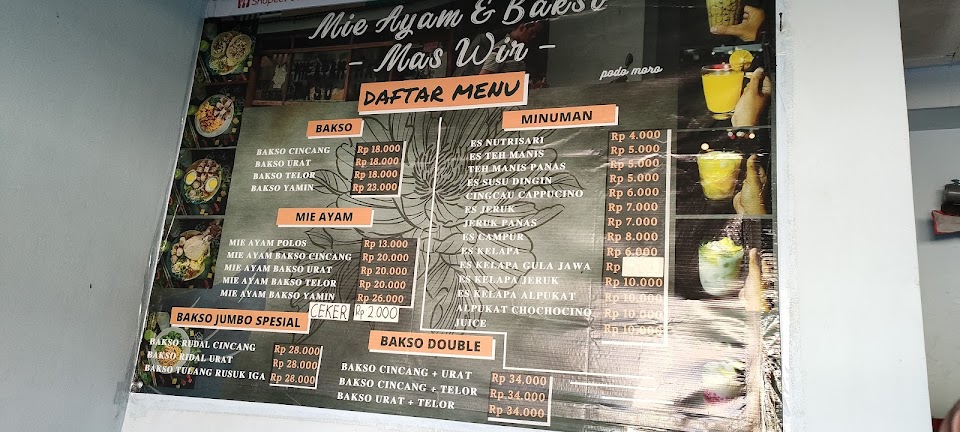 Mie Ayam & Bakso
- Mas Wir -
podo moro
DAFTAR MENU
BAKSO
BAKSO CINCANG Rp 18.000
BAKSO URAT Rp 18.000
BAKSO TELOR Rp 18.000
BAKSO YAMIN Rp 23.000
MIE AYAM
MIE AYAM POLOS Rp 13.000
MIE AYAM BAKSO CINCANG Rp 20.000
MIE AYAM BAKSO URAT Rp 20.000
MIE AYAM BAKSO TELOR Rp 20.000
MIE AYAM BAKSO YAMIN Rp 26.000
CEKER Rp 2.000
BAKSO JUMBO SPESIAL
BAKSO RUDAL CINCANG Rp 28.000
BAKSO RIDAL URAT Rp 28.000
BAKSO TULANG RUSUK IGA Rp 28.000
MINUMAN
ES NUTRISARI Rp 4.000
ES TEH MANIS Rp 5.000
TEH MANIS PANAS Rp 5.000
ES SUSU DINGIN Rp 5.000
CINGCAU CAPPUCINO Rp 6.000
ES JERUK Rp 7.000
JERUK PANAS Rp 7.000
ES CAMPUR Rp 8.000
ES KELAPA Rp 6.000
ES KELAPA GULA JAWA Rp
ES KELAPA JERUK Rp 10.000
ES KELAPA ALPUKAT Rp 10.000
ALPUKAT CHOCHOCINO Rp 10.000
JUICE Rp 10.000
BAKSO DOUBLE
BAKSO CINCANG + URAT Rp 34.000
BAKSO CINCANG + TELOR Rp 34.000
BAKSO URAT + TELOR Rp 34.000